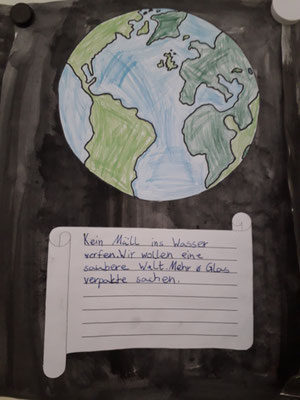 Kein Müll ins Wasser
werfen. Wir wollen eine
saubere Welt. Mehr Glas
verpakte sachen.